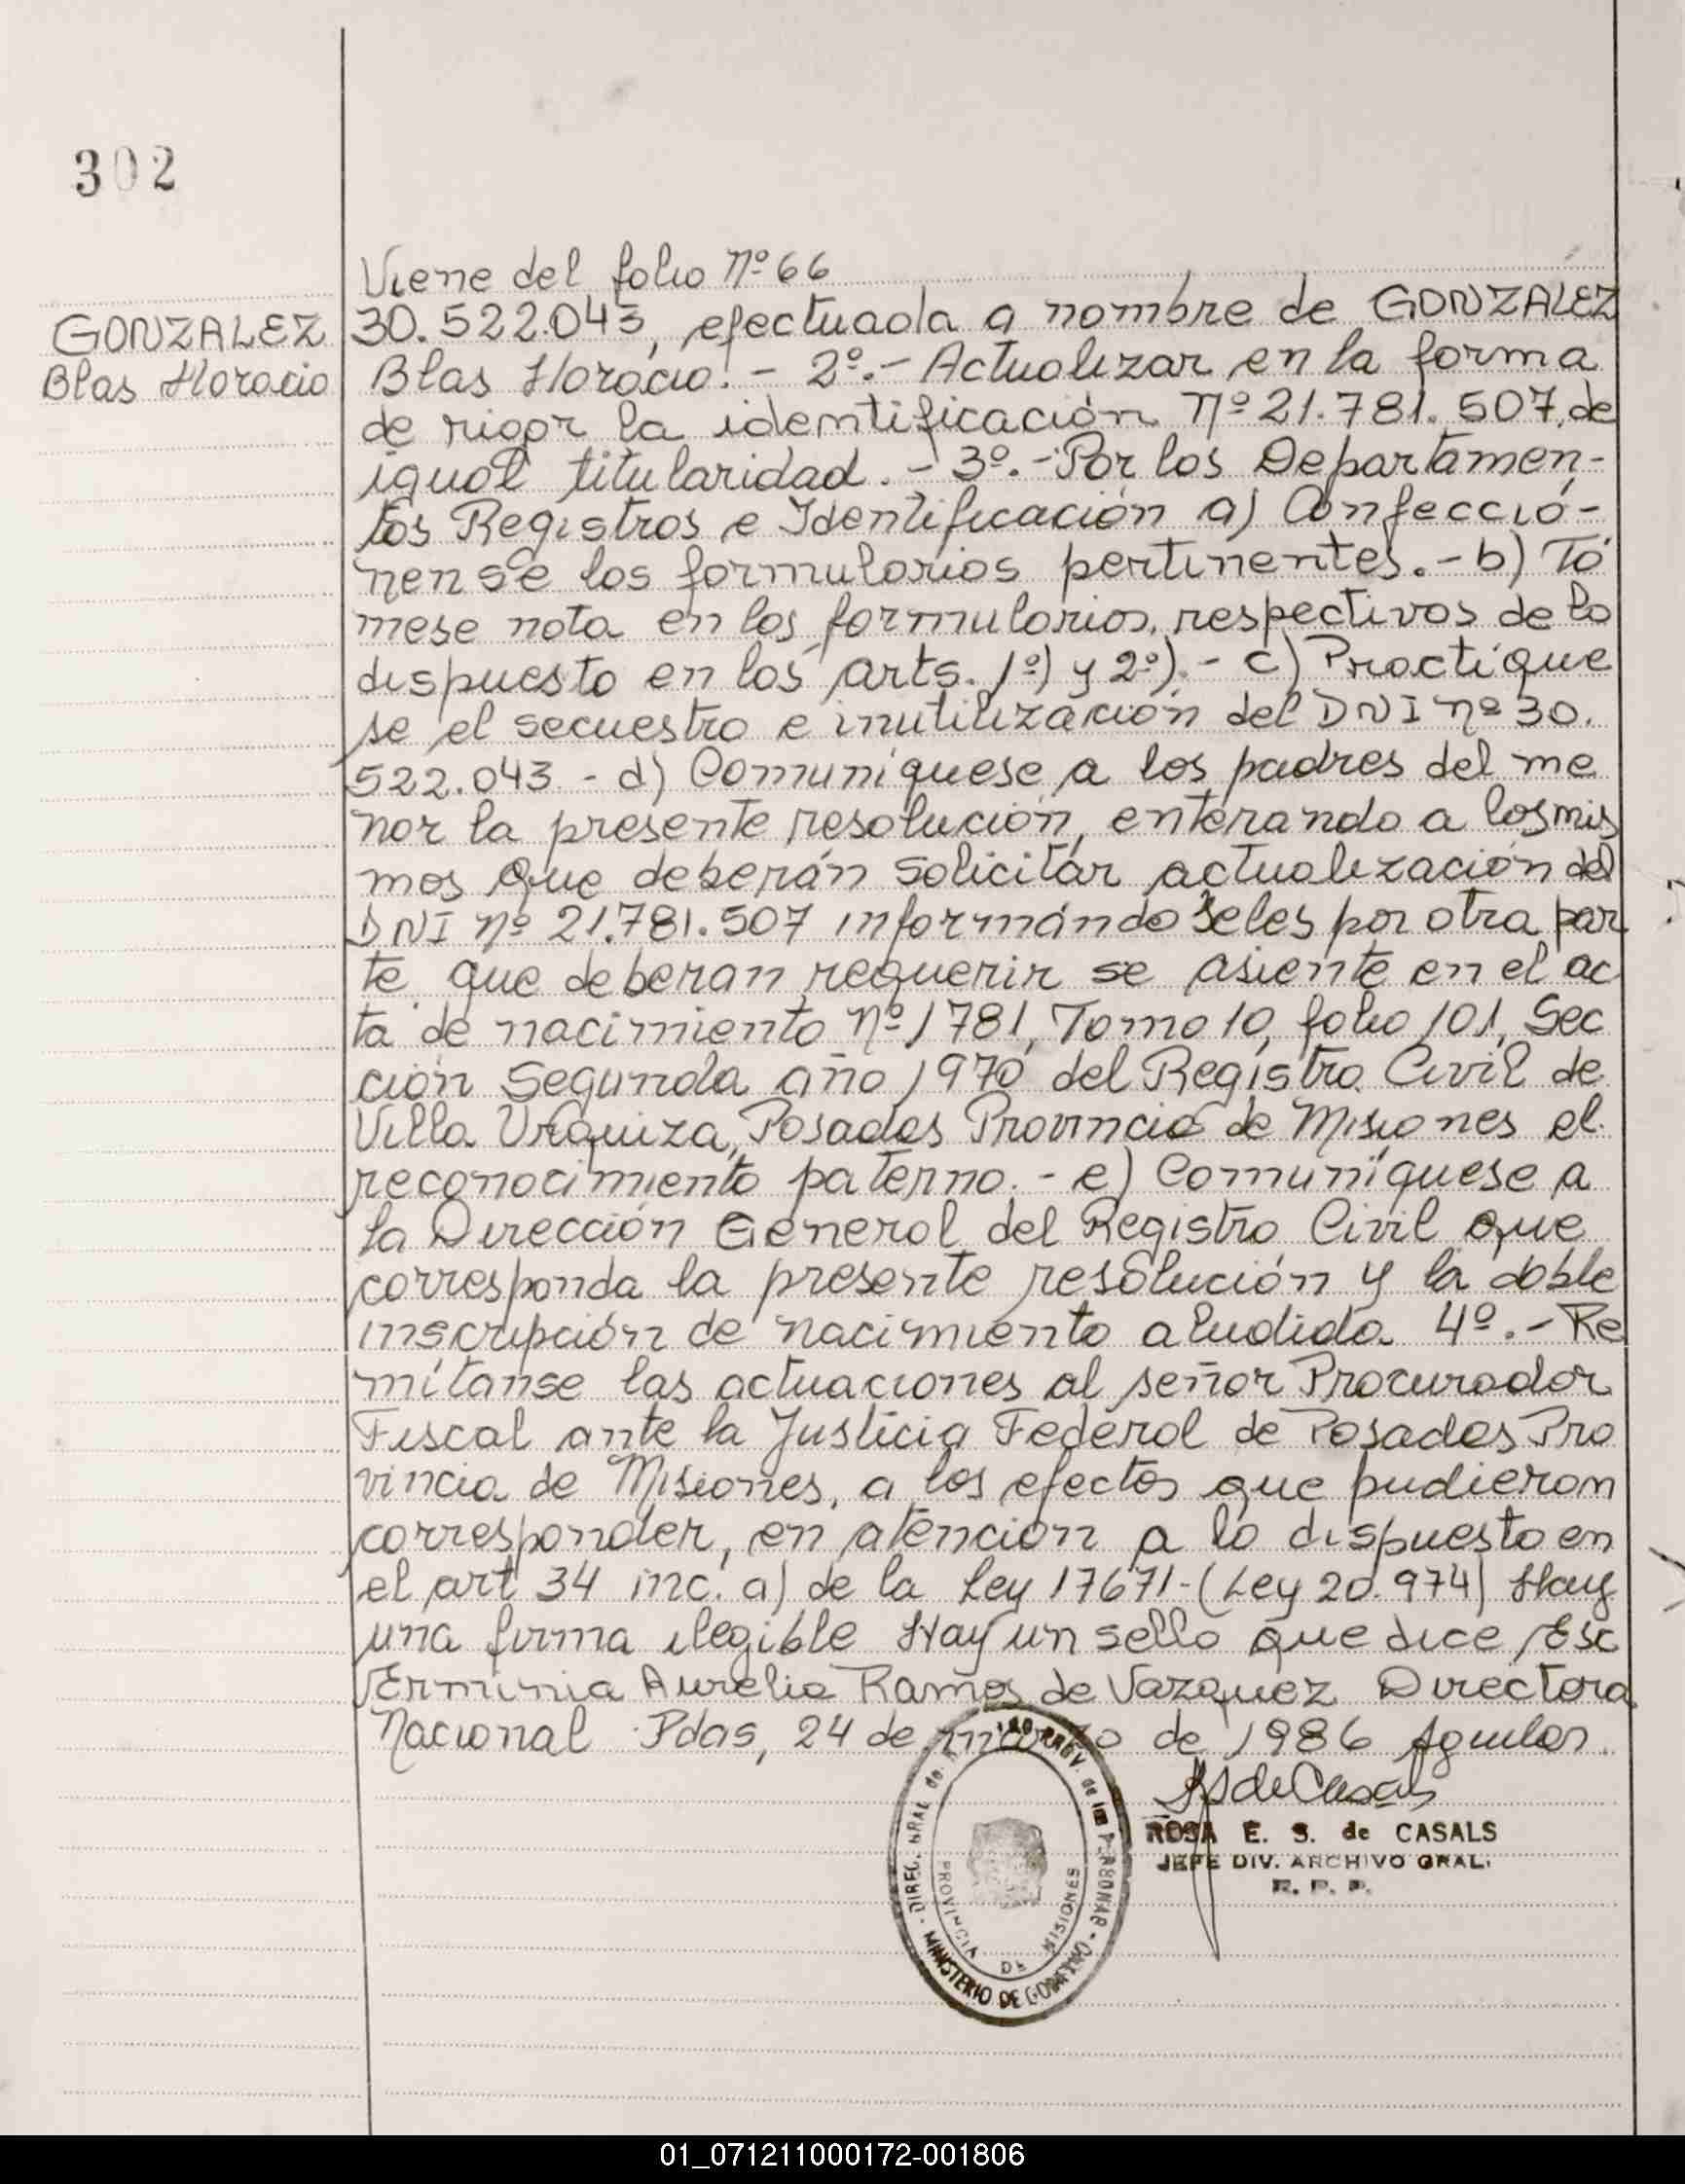 302
Viene del folio Nº 66
GONZALEZ
Blas Horacio
30.522.043, efectuada a nombre de GONZALEZ
Blas Horacio. - 2º.- Actualizar en la forma
de rigor la identificación Nº 21.781.507, de
igual titularidad. - 3º.- Por los Departamen-
tos Registros e Identificación a) Confecció-
nense los formularios pertinentes. - b) Tó
mese nota en los formularios respectivos de lo
dispuesto en los arts. 1º) y 2º). - c) Practíque
se el secuestro e inutilización del DNI nº 30.
522.043 - d) Comuníquese a los padres del me
nor la presente resolución, enterando a los mis
mos que deberán solicitar actualización del
DNI Nº 21.781.507 informándoseles por otra par
te que deberan requerir se asiente en el ac
ta de nacimiento Nº 1781, Tomo 10, folio 101, Sec
ción Segunda año 1970 del Registro Civil de
Villa Urquiza, Posadas Provincia de Misiones el
reconocimiento paterno. - e) Comuníquese a
la Dirección General del Registro Civil que
corresponda la presente resolución y la doble
inscripción de nacimiento aludida 4º.- Re
mítanse las actuaciones al señor Procurador
Fiscal ante la Justicia Federal de Posadas Pro
vincia de Misiones, a los efectos que pudieran
corresponder, en atención a lo dispuesto en
el art 34 inc. a) de la Ley 17671- (Ley 20.974) Hay
una firma ilegible Hay un sello que dice, Esc
Erminia Aurelia Ramos de Vazquez Directora
Nacional Pdas, 24 de marzo de 1986 Aguilar
ROSA E. S. de CASALS
JEFE DIV. ARCHIVO GRAL.
R. P. P.
DIREC. GRAL de PROV. de las PERSONAS
PROVINCIA DE MISIONES
MINISTERIO DE GOBIERNO
01_071211000172-001806